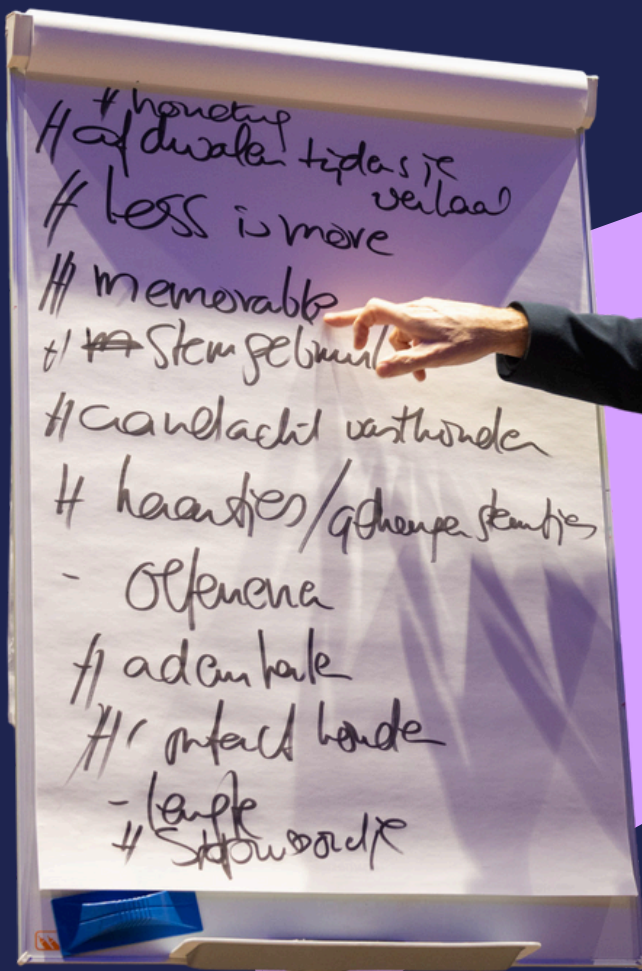 # houding
# afdwalen tijdens je
verhaal
# less is more
# memorable
# stemgebruik
# aandacht vasthouden
# haantjes/
- oefenen
# ademhale
# contact houde
- lengte
# stopwoordje